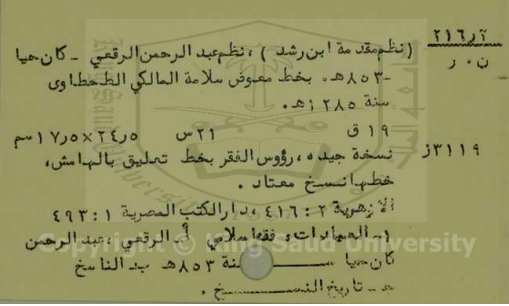 ٢١٦ر٢
ن ٠ ر
(نظم مقدمة ابن رشد) ، نظم عبد الرحمن الرقعي - كان حيا
٨٥٣هـ - بخط معوض سلامة المالكي الطحطاوى
سنة ١٢٨٥هـ .
١٩ ق ٢١ س ٢٤ر٥×١٧ر٥سم
٣١١٩ز
نسخة جيده ، رؤوس الفقر بخط تعليق بالهامش ،
خطها نسخ معتاد .
الازهرية ٢ : ٤١٦ ، دار الكتب المصرية ١ : ٤٩٣
١- العبادات ، فقه اسلامي أ- الرقعي ، عبد الرحمن
كان حيا سنة ٨٥٣هـ ب- الناسخ
ج - تاريخ النسخ .
Copyright © King Saud University